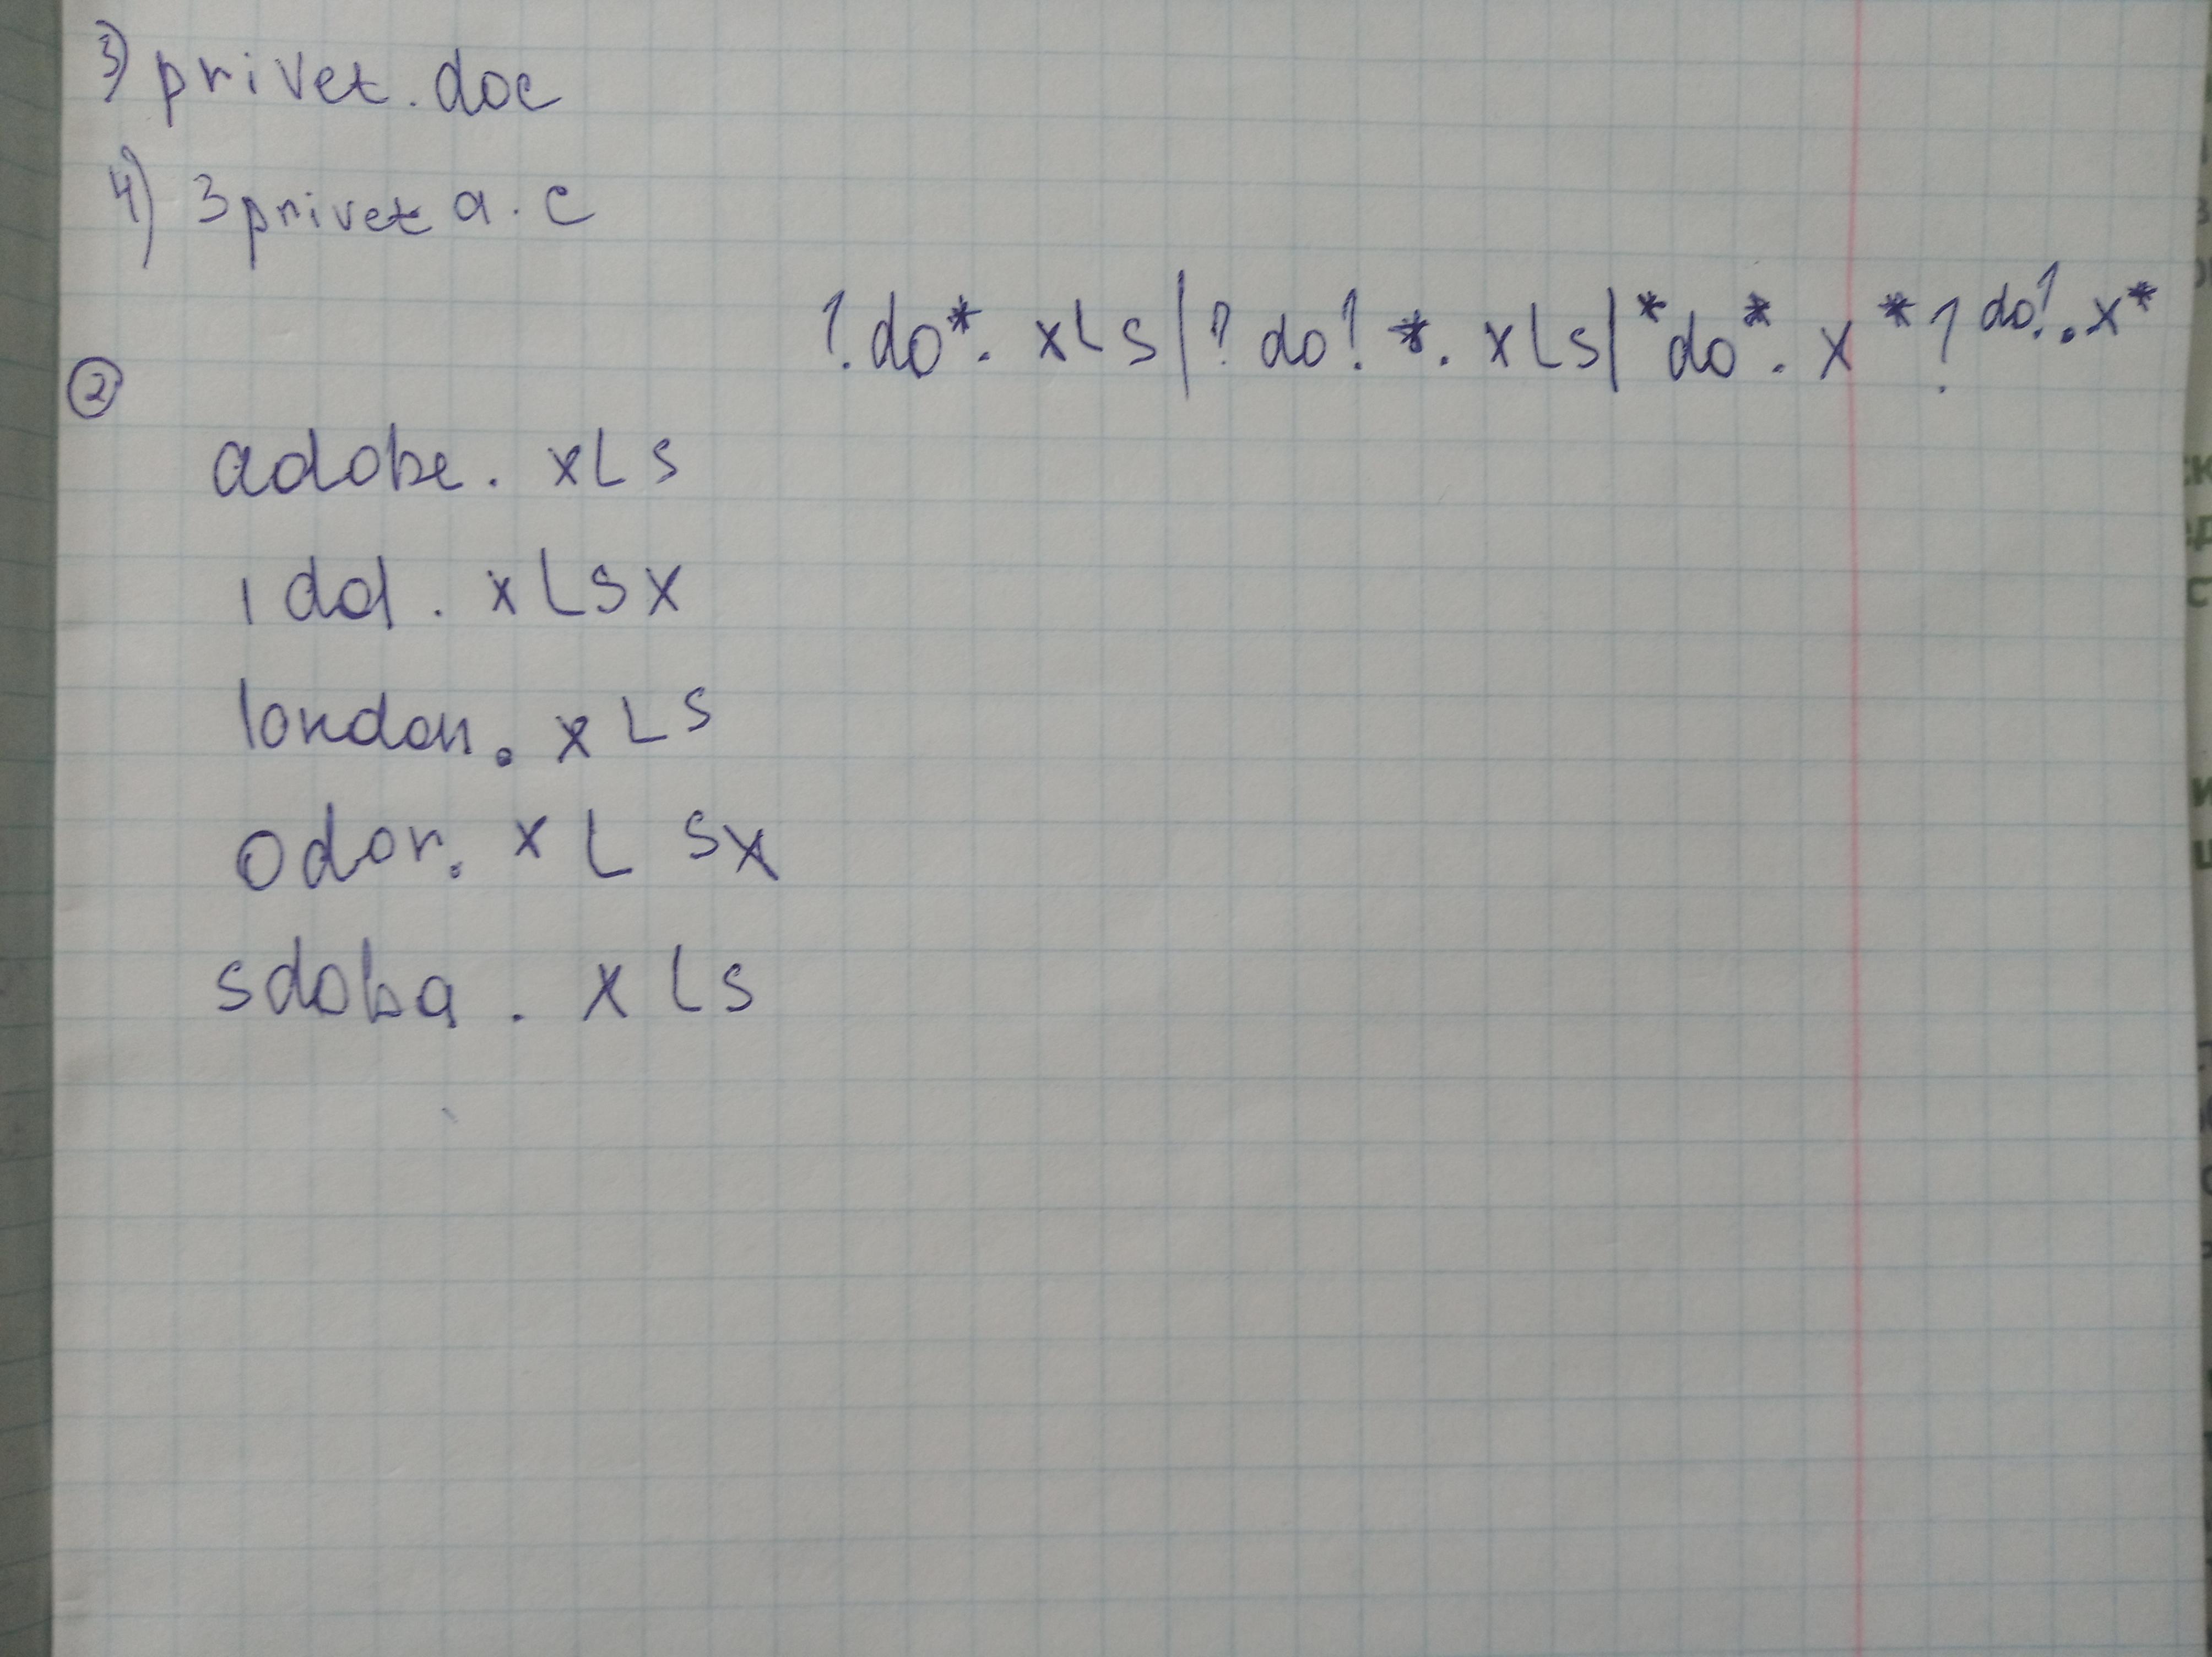 3) privet.doc
4) 3priveta.c
?do*.xLs|?do?*.xLs|*do*.x*?do?.x*
②
adobe.xLs
idol.xLsx
london.xLs
odor.xLsx
sdoba.xLs